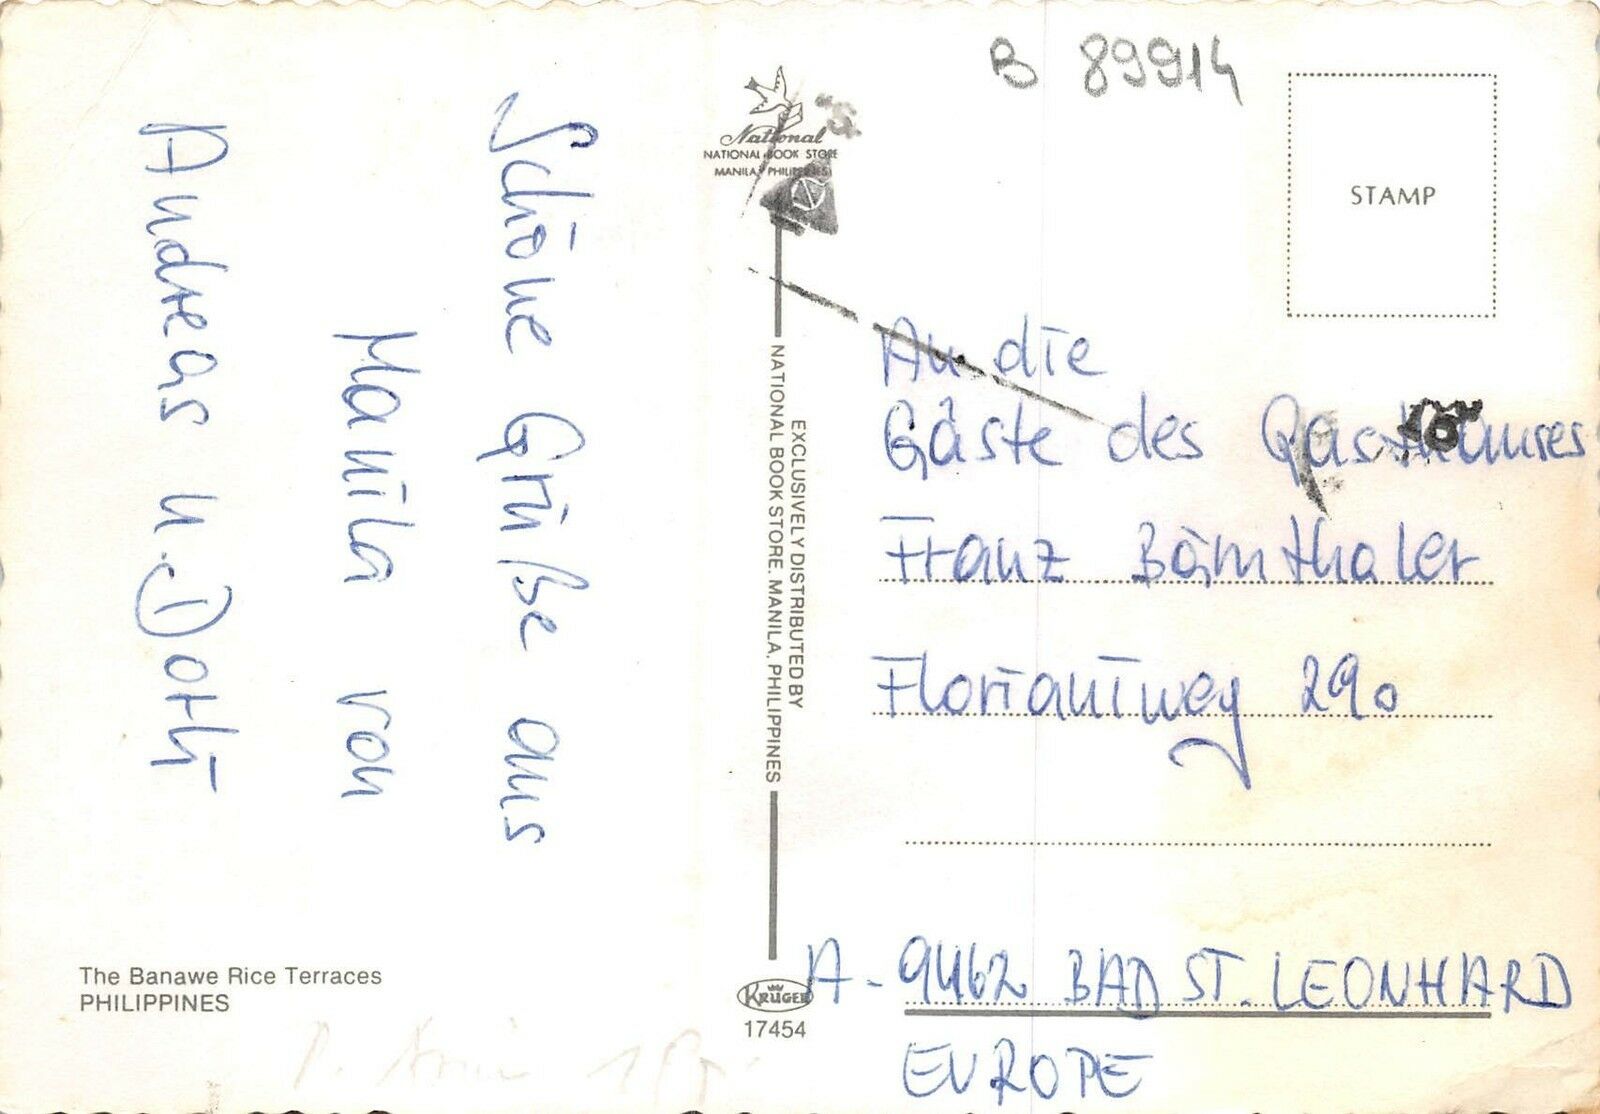 B 89914
National
NATIONAL BOOK STORE
MANILA, PHILIPPINES
STAMP
Schöne Grüße aus
Manila von
Andreas u. Dorli
EXCLUSIVELY DISTRIBUTED BY
NATIONAL BOOK STORE. MANILA, PHILIPPINES
An die
Gäste des Gasthauses
Franz Bärnthaler
Florianiweg 290
A-9462 BAD ST. LEONHARD
EUROPE
The Banawe Rice Terraces
PHILIPPINES
KRÜGER
17454